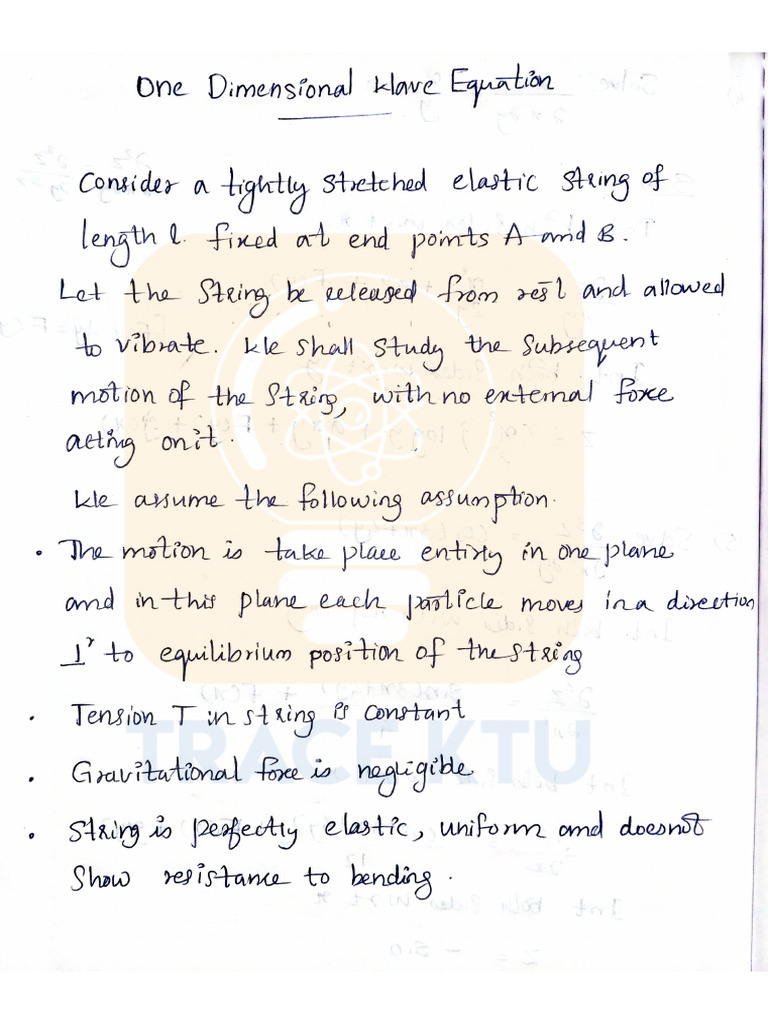 One Dimensional Wave Equation
Consider a tightly stretched elastic string of
length l. fixed at end points A and B.
Let the string be released from rest and allowed
to vibrate. We shall study the subsequent
motion of the string, with no external force
acting on it.
We assume the following assumption.
• The motion is take place entirly in one plane
and in this plane each particle moves in a direction
⊥r to equilibrium position of the string
• Tension T in string is constant
TRACE KTU
• Gravitational force is negligible
• String is perfectly elastic, uniform and doesnot
show resistance to bending.